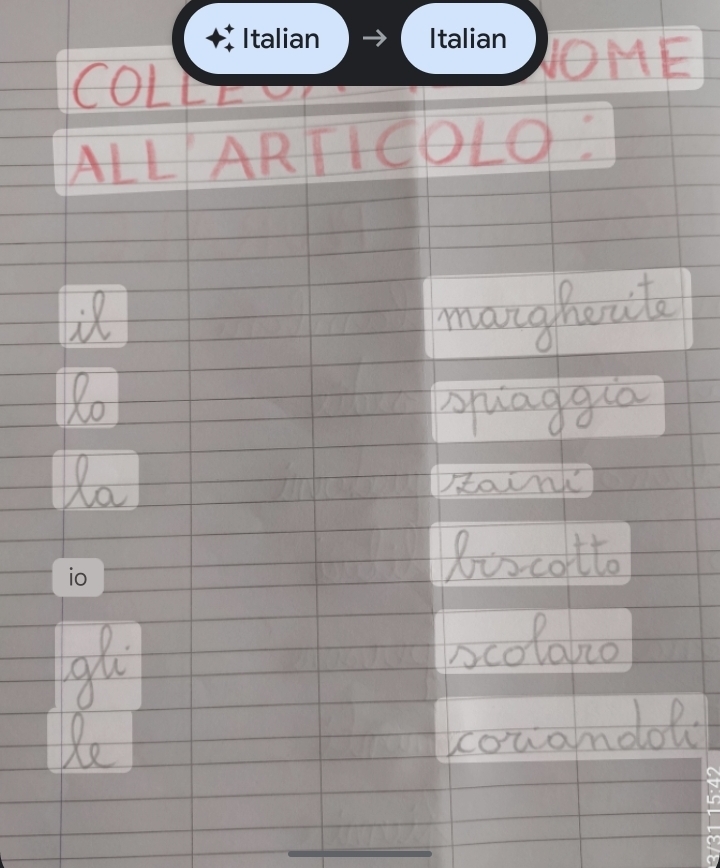 Italian → Italian
COLLEGA NOME
ALL'ARTICOLO:
il margherite
lo spiaggia
la zaini
io biscotto
gli scolaro
le coriandoli
/31 15:42